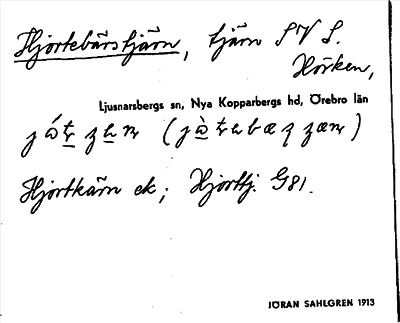 Hjortebärstjärn, tjärn SV S.
Hörken,
Ljusnarsbergs sn, Nya Kopparbergs hd, Örebro län
Hjortkärn ek; Hjorttj. G81.
JÖRAN SAHLGREN 1913